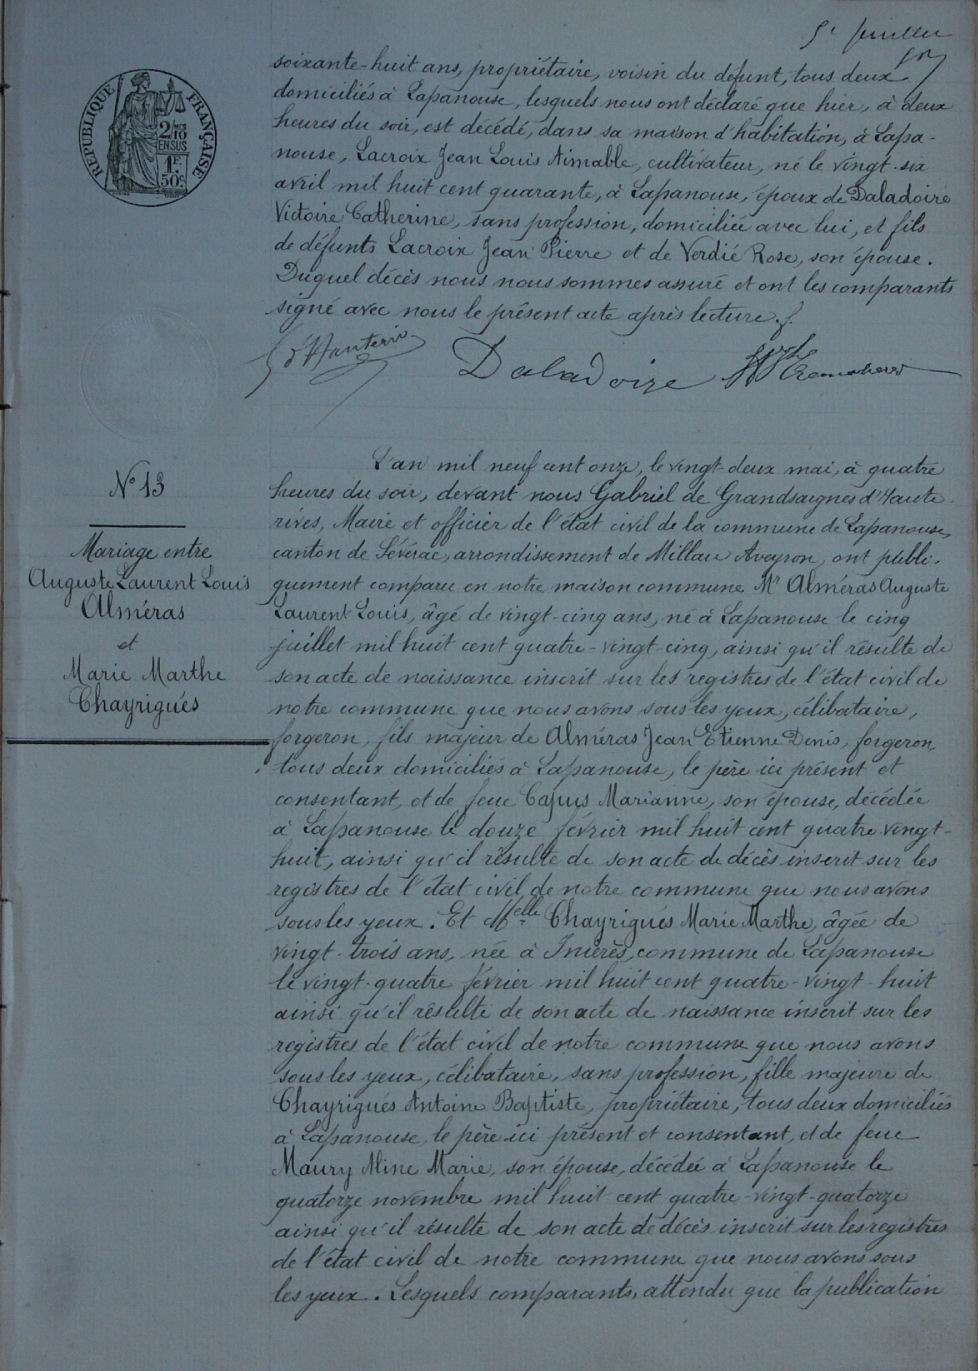 5e feuillet
RÉPUBLIQUE FRANÇAISE
2/10
EN SUS
1F.
50c
soixante-huit ans, propriétaire, voisin du défunt, tous deux
domiciliés à Lapanouse, lesquels nous ont déclaré que hier, à deux
heures du soir, est décédé, dans sa maison d'habitation, à Lapa-
nouse, Lacroix Jean Louis Aimable, cultivateur, né le vingt-six
avril mil huit cent quarante, à Lapanouse, époux de Daladoire
Victoire Catherine, sans profession, domiciliée avec lui, et fils
de défunts Lacroix Jean Pierre et de Verdié Rose, son épouse.
Duquel décès nous nous sommes assuré et ont les comparants
signé avec nous le présent acte après lecture.
Daladoire
N° 13
Mariage entre
Auguste Laurent Louis
Alméras
et
Marie Marthe
Chayriguès
L'an mil neuf cent onze, le vingt-deux mai, à quatre
heures du soir, devant nous Gabriel de Grandsaignes d'Haute-
rives, Maire et officier de l'état civil de la commune de Lapanouse,
canton de Sévérac, arrondissement de Millau Aveyron, ont publi-
quement comparu en notre maison commune Mr Alméras Auguste
Laurent Louis, âgé de vingt-cinq ans, né à Lapanouse le cinq
juillet mil huit cent quatre-vingt-cinq, ainsi qu'il résulte de
son acte de naissance inscrit sur les registres de l'état civil de
notre commune que nous avons sous les yeux, célibataire,
forgeron, fils majeur de Alméras Jean Etienne Denis, forgeron,
tous deux domiciliés à Lapanouse, le père ici présent et
consentant, et de feue Capus Marianne, son épouse, décédée
à Lapanouse le douze février mil huit cent quatre vingt-
huit, ainsi qu'il résulte de son acte de décès inscrit sur les
registres de l'état civil de notre commune que nous avons
sous les yeux. Et Melle Chayriguès Marie Marthe, âgée de
vingt-trois ans, née à Inières, commune de Lapanouse
le vingt-quatre février mil huit cent quatre-vingt-huit
ainsi qu'il résulte de son acte de naissance inscrit sur les
registres de l'état civil de notre commune que nous avons
sous les yeux, célibataire, sans profession, fille majeure de
Chayriguès Antoine Baptiste, propriétaire, tous deux domiciliés
à Lapanouse, le père ici présent et consentant, et de feue
Maury Aline Marie, son épouse, décédée à Lapanouse le
quatorze novembre mil huit cent quatre-vingt-quatorze
ainsi qu'il résulte de son acte de décès inscrit sur les registres
de l'état civil de notre commune que nous avons sous
les yeux. Lesquels comparants, attendu que la publication